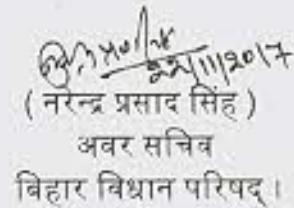 22/11/2017
( नरेन्द्र प्रसाद सिंह )
अवर सचिव
बिहार विधान परिषद् ।